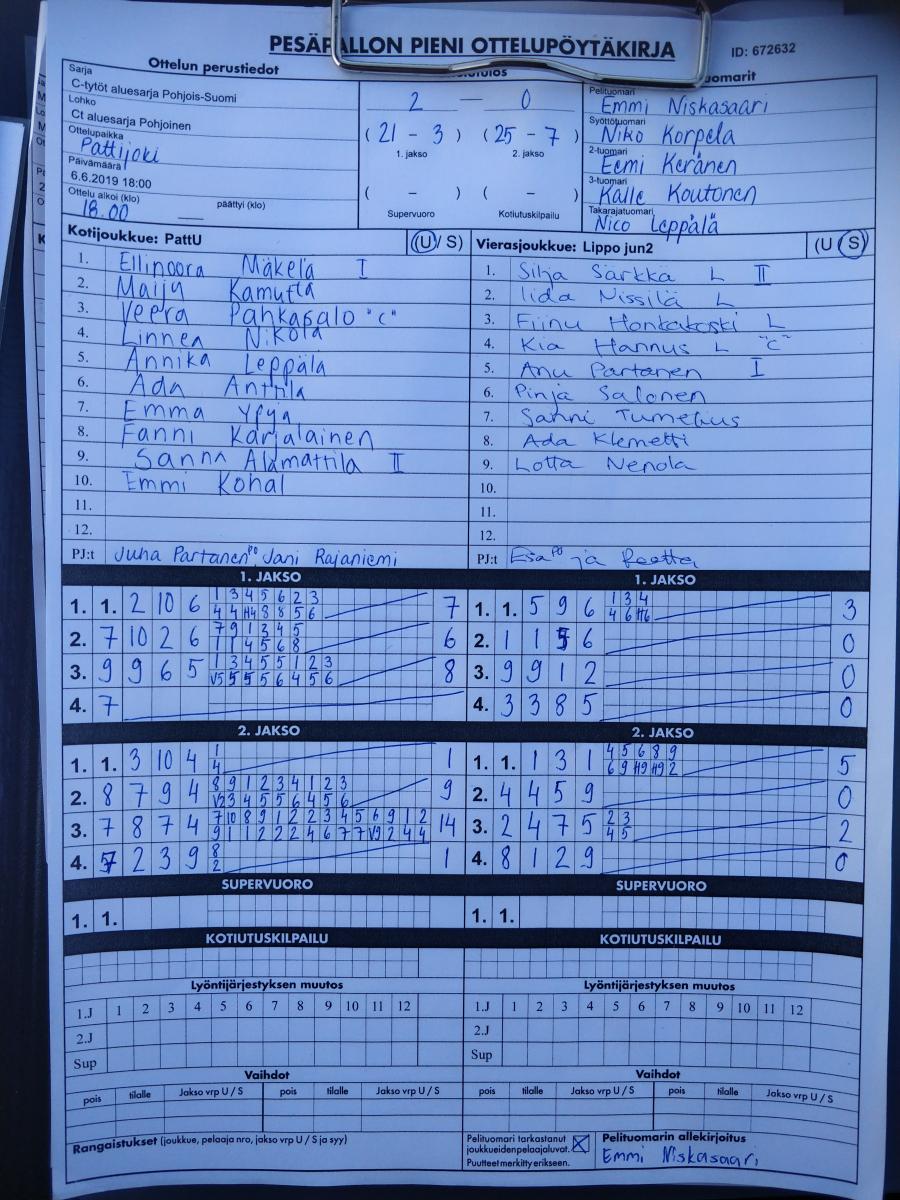 PESÄPALLON PIENI OTTELUPÖYTÄKIRJA
ID: 672632
Ottelun perustiedot
Sarja
C-tytöt aluesarja Pohjois-Suomi
Lohko
Ct aluesarja Pohjoinen
Ottelupaikka
Pattijoki
Päivämäärä
6.6.2019 18:00
Ottelu alkoi (klo) päättyi (klo)
18.00
2 — 0
(21 - 3) (25 - 7)
1. jakso 2. jakso
( - ) ( - )
Supervuoro Kotiutuskilpailu
Pelituomari
Emmi Niskasaari
Syöttötuomari
Niko Korpela
2-tuomari
Eemi Keränen
3-tuomari
Kalle Koutonen
Takarajatuomari
Nico Leppälä
Kotijoukkue: PattU (U/ S)
1. Ellinoora Mäkelä I
2. Maiju Kamutta
3. Veera Pahkasalo "C"
4. Linnea Nikola
5. Annika Leppälä
6. Ada Anttila
7. Emma Ypyä
8. Fanni Karjalainen
9. Sanna Alamattila II
10. Emmi Kohal
11.
12.
PJ:t Juha Partanen PO, Jani Rajaniemi
Vierasjoukkue: Lippo jun2 (U / S)
1. Silja Särkkä L II
2. Iida Nissilä L
3. Fiinu Honkakoski L
4. Kia Hannus L "C"
5. Anu Partanen I
6. Pinja Salonen
7. Sanni Tumelius
8. Ada Klemetti
9. Lotta Nenola
10.
11.
12.
PJ:t Esa PO ja Reetta
1. JAKSO
1. 1. 2 10 6 1 3 4 5 6 2 3 7
4 4 H4 8 8 5 6
2. 7 10 2 6 7 9 1 3 4 5 6
1 1 4 5 6 8
3. 9 9 6 5 1 3 4 5 5 1 2 3 8
V5 5 5 5 6 4 5 6
4. 7
1. JAKSO
1. 1. 5 9 6 1 3 4 3
4 6 H6
2. 1 1 5 6 0
3. 9 9 1 2 0
4. 3 3 8 5 0
2. JAKSO
1. 1. 3 10 4 1 1
4
2. 8 7 9 4 8 9 1 2 3 4 1 2 3 9
V2 3 4 5 5 6 4 5 6
3. 7 8 7 4 7 10 8 9 1 2 2 3 4 5 6 9 1 2 14
9 1 1 2 2 2 4 6 7 7 V9 2 4 4
4. 7 2 3 9 8 1
2
2. JAKSO
1. 1. 1 3 1 4 5 6 8 9 5
6 9 H9 H9 2
2. 4 4 5 9 0
3. 2 4 7 5 2 3 2
4 5
4. 8 1 2 9 0
SUPERVUORO
1. 1.
SUPERVUORO
1. 1.
KOTIUTUSKILPAILU
KOTIUTUSKILPAILU
Lyöntijärjestyksen muutos
1.J 1 2 3 4 5 6 7 8 9 10 11 12
2.J
Sup
Lyöntijärjestyksen muutos
1.J 1 2 3 4 5 6 7 8 9 10 11 12
2.J
Sup
Vaihdot
pois tilalle Jakso vrp U / S pois tilalle Jakso vrp U / S
Vaihdot
pois tilalle Jakso vrp U / S pois tilalle Jakso vrp U / S
Rangaistukset (joukkue, pelaaja nro, jakso vrp U / S ja syy)
Pelituomari tarkastanut
joukkueiden pelaajaluvat.
Puutteet merkitty erikseen.
Pelituomarin allekirjoitus
Emmi Niskasaari